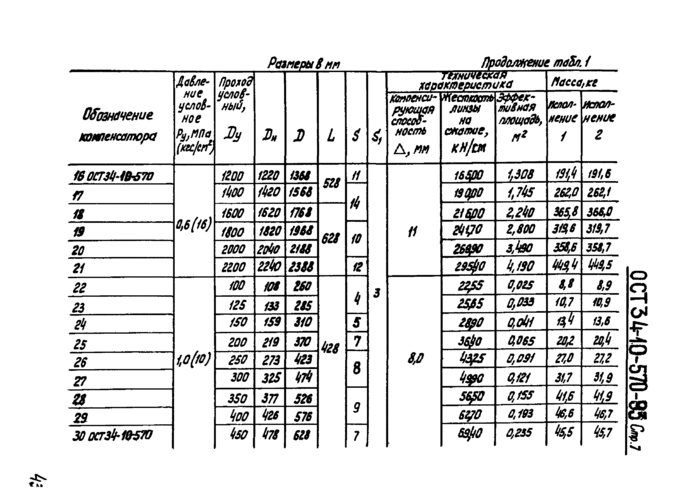 Размеры в мм Продолжение табл. 1
Обозначение компенсатора | Давление условное Ру, МПа (кгс/см²) | Проход условный, Dу | Dн | D | L | S | S₁ | Техническая характеристика: Компенсирующая способность △, мм | Жесткость линзы на сжатие, кН/см | Эффективная площадь, м² | Масса, кг: Исполнение 1 | Исполнение 2
16 ОСТ34-10-570 | 0,6(16) | 1200 | 1220 | 1368 | 528 | 11 | 3 | 11 | 16500 | 1,308 | 191,4 | 191,6
17 1400 1420 1568 14 19000 1,745 262,0 262,1
18 1600 1620 1768 628 21600 2,240 365,8 366,0
19 1800 1820 1968 10 24170 2,800 319,6 319,7
20 2000 2040 2188 26890 3,490 358,6 358,7
21 2200 2240 2388 12 29540 4,190 449,4 449,5
22 1,0(10) 100 108 260 428 4 8,0 2255 0,025 8,8 8,9
23 125 133 285 2565 0,033 10,7 10,9
24 150 159 310 5 2890 0,041 13,4 13,6
25 200 219 370 7 3640 0,065 20,2 20,4
26 250 273 423 8 4325 0,091 27,0 27,2
27 300 325 474 4990 0,121 31,7 31,9
28 350 377 526 9 5650 0,155 41,6 41,9
29 400 426 576 6270 0,193 46,6 46,7
30 ОСТ34-10-570 450 478 628 7 6940 0,235 45,5 45,7
ОСТ34-10-570-93 Стр.7